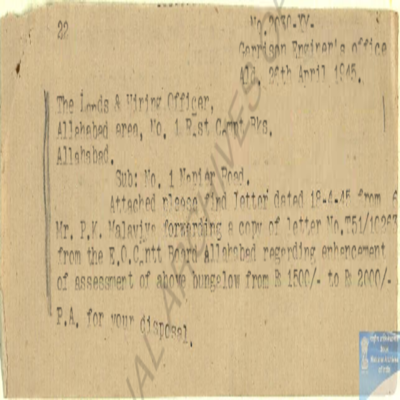 22
No. 2030.IV.
Garrison Enginer's office
Ald. 26th April 1945.
The Lands & Hiring Officer,
Allahabad area, No. 1 R.st C.mpt Bks.
Allahabad.
Sub: No. 1 Napier Road.
Attached please find letter dated 18-4-45 from
Mr. P.K. Malaviya forwarding a copy of letter No.T51/10263
from the E.O.C.ntt Board Allahabad regarding enhancement
of assessment of above bungelow from Rs 1500/- to Rs 2000/-
P.A. for your disposal.